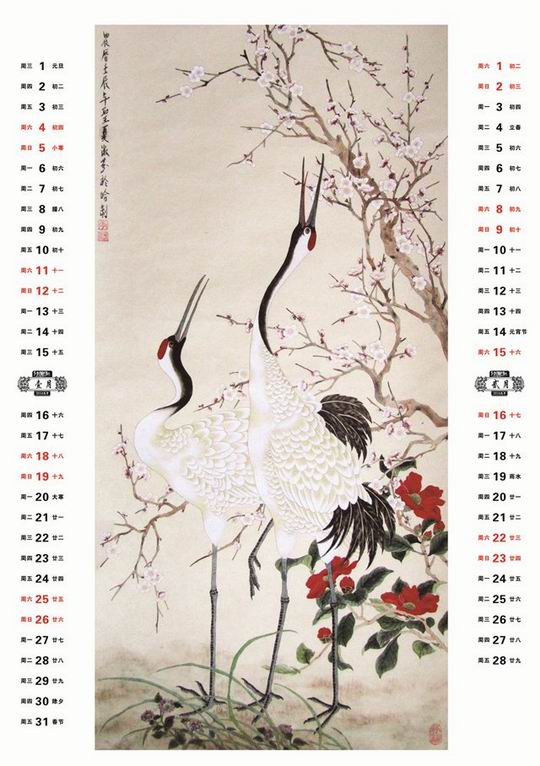 周三 1 元旦
周四 2 初二
周五 3 初三
周六 4 初四
周日 5 小寒
周一 6 初六
周二 7 初七
周三 8 腊八
周四 9 初九
周五 10 初十
周六 11 十一
周日 12 十二
周一 13 十三
周二 14 十四
周三 15 十五
壹月
周四 16 十六
周五 17 十七
周六 18 十八
周日 19 十九
周一 20 大寒
周二 21 廿一
周三 22 廿二
周四 23 廿三
周五 24 廿四
周六 25 廿五
周日 26 廿六
周一 27 廿七
周二 28 廿八
周三 29 廿九
周四 30 除夕
周五 31 春节
周六 1 初二
周日 2 初三
周一 3 初四
周二 4 立春
周三 5 初六
周四 6 初七
周五 7 初八
周六 8 初九
周日 9 初十
周一 10 十一
周二 11 十二
周三 12 十三
周四 13 十四
周五 14 元宵节
周六 15 十六
贰月
周日 16 十七
周一 17 十八
周二 18 十九
周三 19 雨水
周四 20 廿一
周五 21 廿二
周六 22 廿三
周日 23 廿四
周一 24 廿五
周二 25 廿六
周三 26 廿七
周四 27 廿八
周五 28 廿九